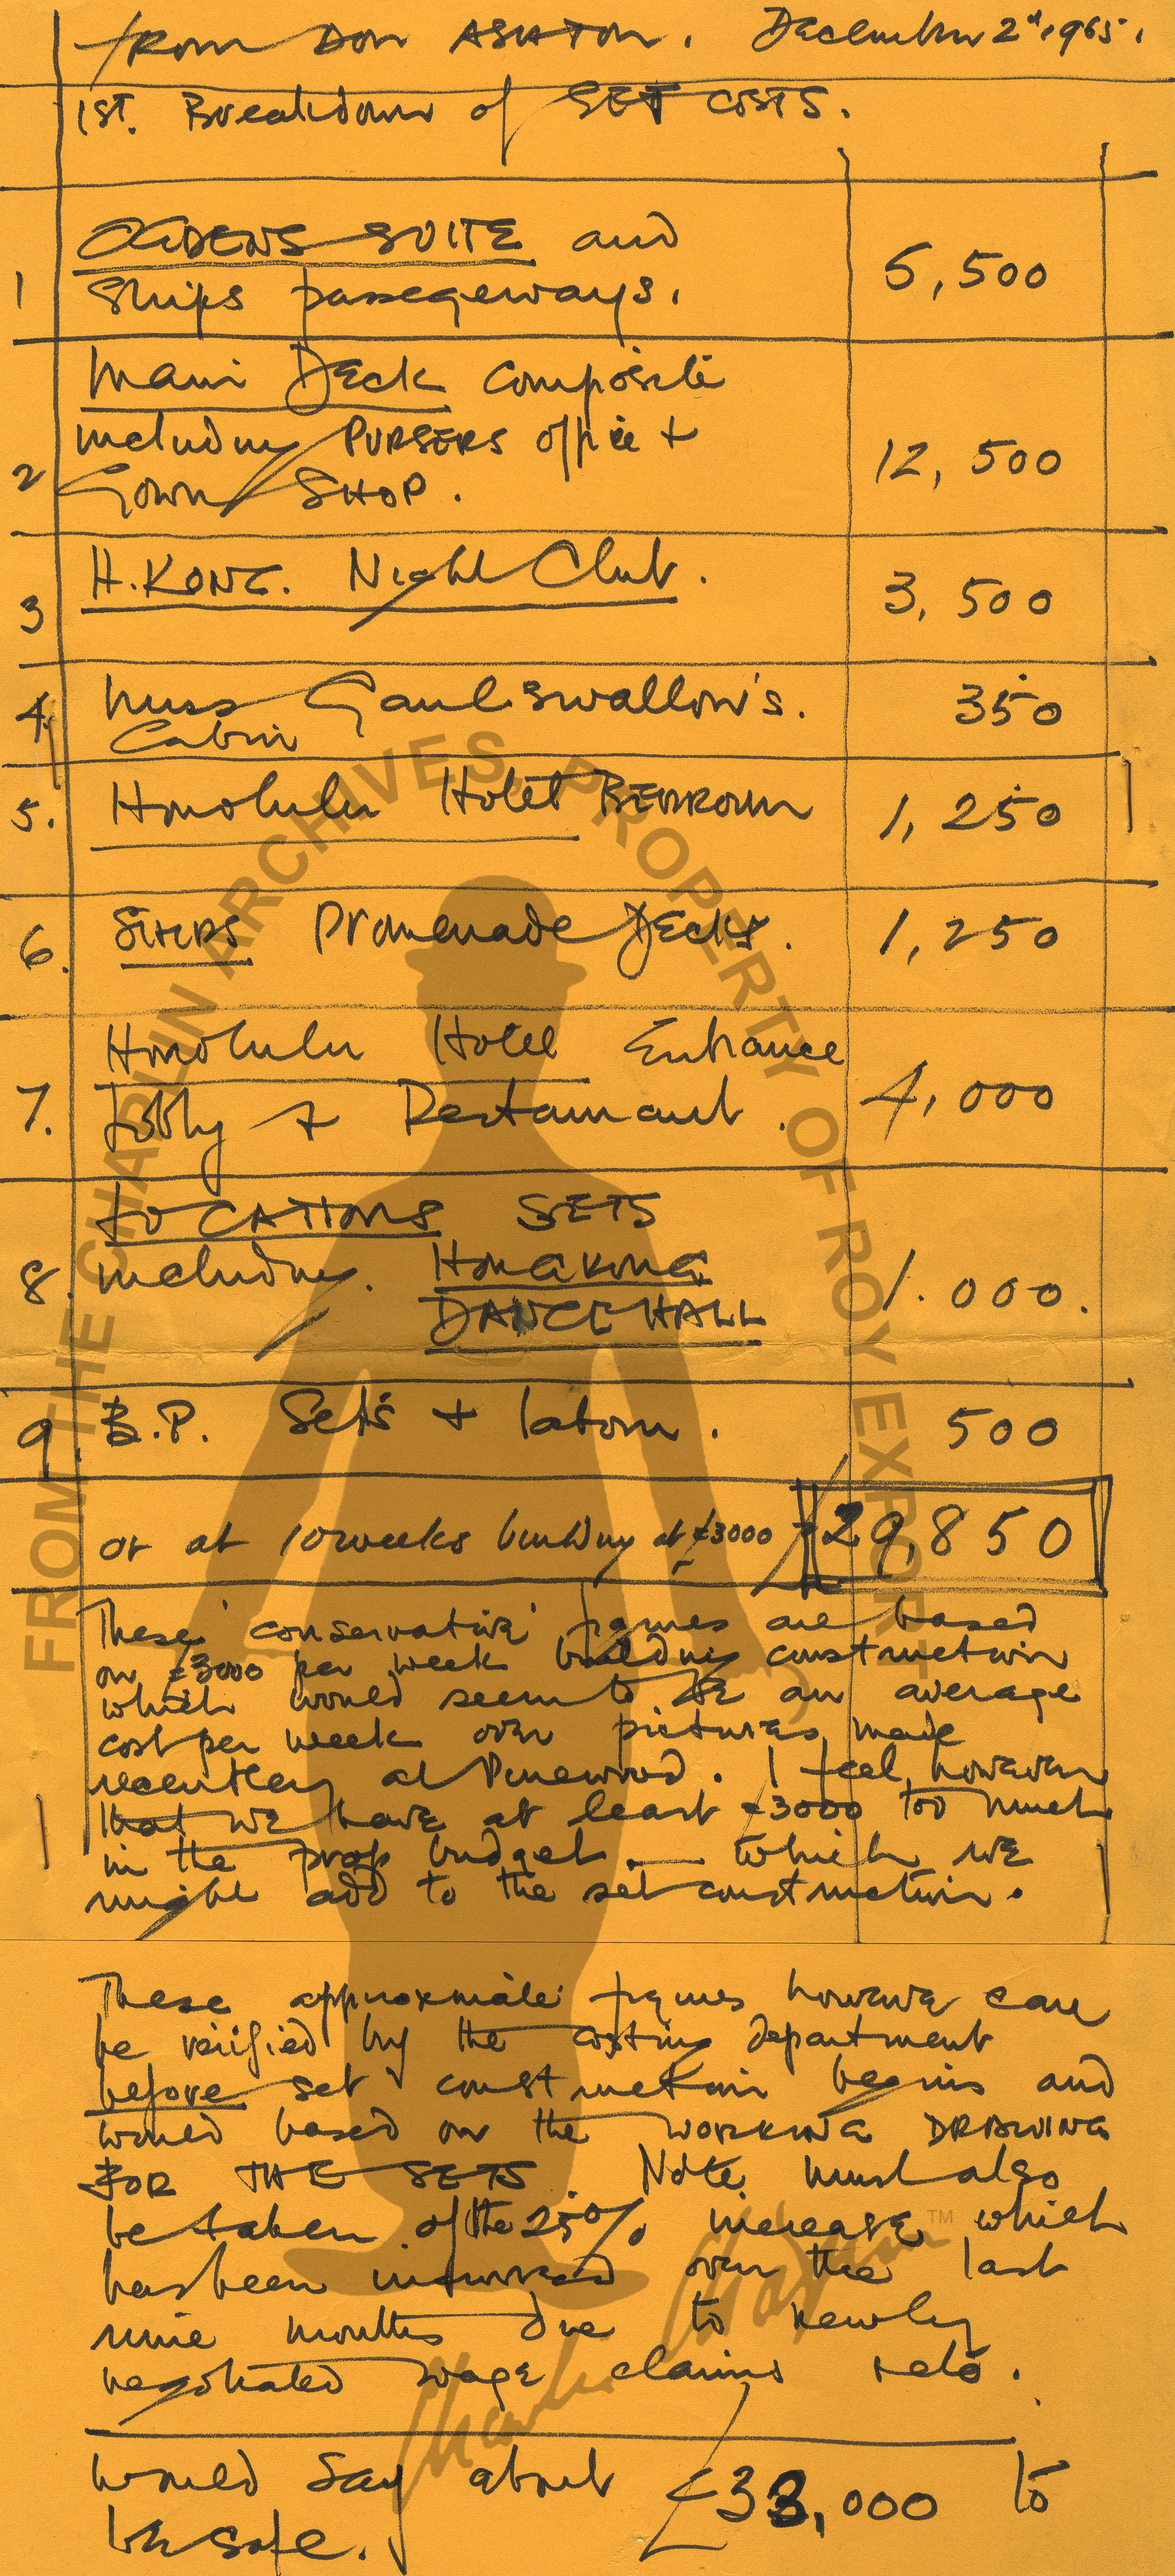 from DON ASHTON. December 2nd 1965.
1ST. Breakdown of SET COSTS.
1 OGDENS SUITE and
Ships passegeways. 5,500
Main Deck Composite
including PURSERS office +
2 Gown SHOP. 12,500
3 H.KONG. Night Club. 3,500
4. Miss Gaulswallow's.
Cabin 350
5. Honolulu Hotel BEDROOM 1,250
6. SHIPS Promenade Decks. 1,250
Honolulu Hotel Entrance
7. Lobby + Restaurant. 4,000
LOCATIONS SETS
8. including. HONGKONG
DANCE HALL 1.000.
9. B.P. Sets + labour. 500
or at 10 weeks building at £3000 £29,850
These 'conservative' figures are based
on £3000 per week building construction
which would seem to BE an average
cost per week over pictures made
recently at Pinewood. I feel, however
that WE have at least £3000 too much
in the prop budget. — which WE
might add to the set construction.
These approximate figures however can
be verified by the costing department
before set construction begins and
would based on the WORKING DRAWING
FOR THE SETS. Note must also
be taken of the 25% increase which
has been incurred over the last
nine months due to newly
negotiated wage claims +etc.
Would say about £33,000 to
be safe.
FROM THE CHAPLIN ARCHIVES, PROPERTY OF ROY EXPORT
Charlie Chaplin ™